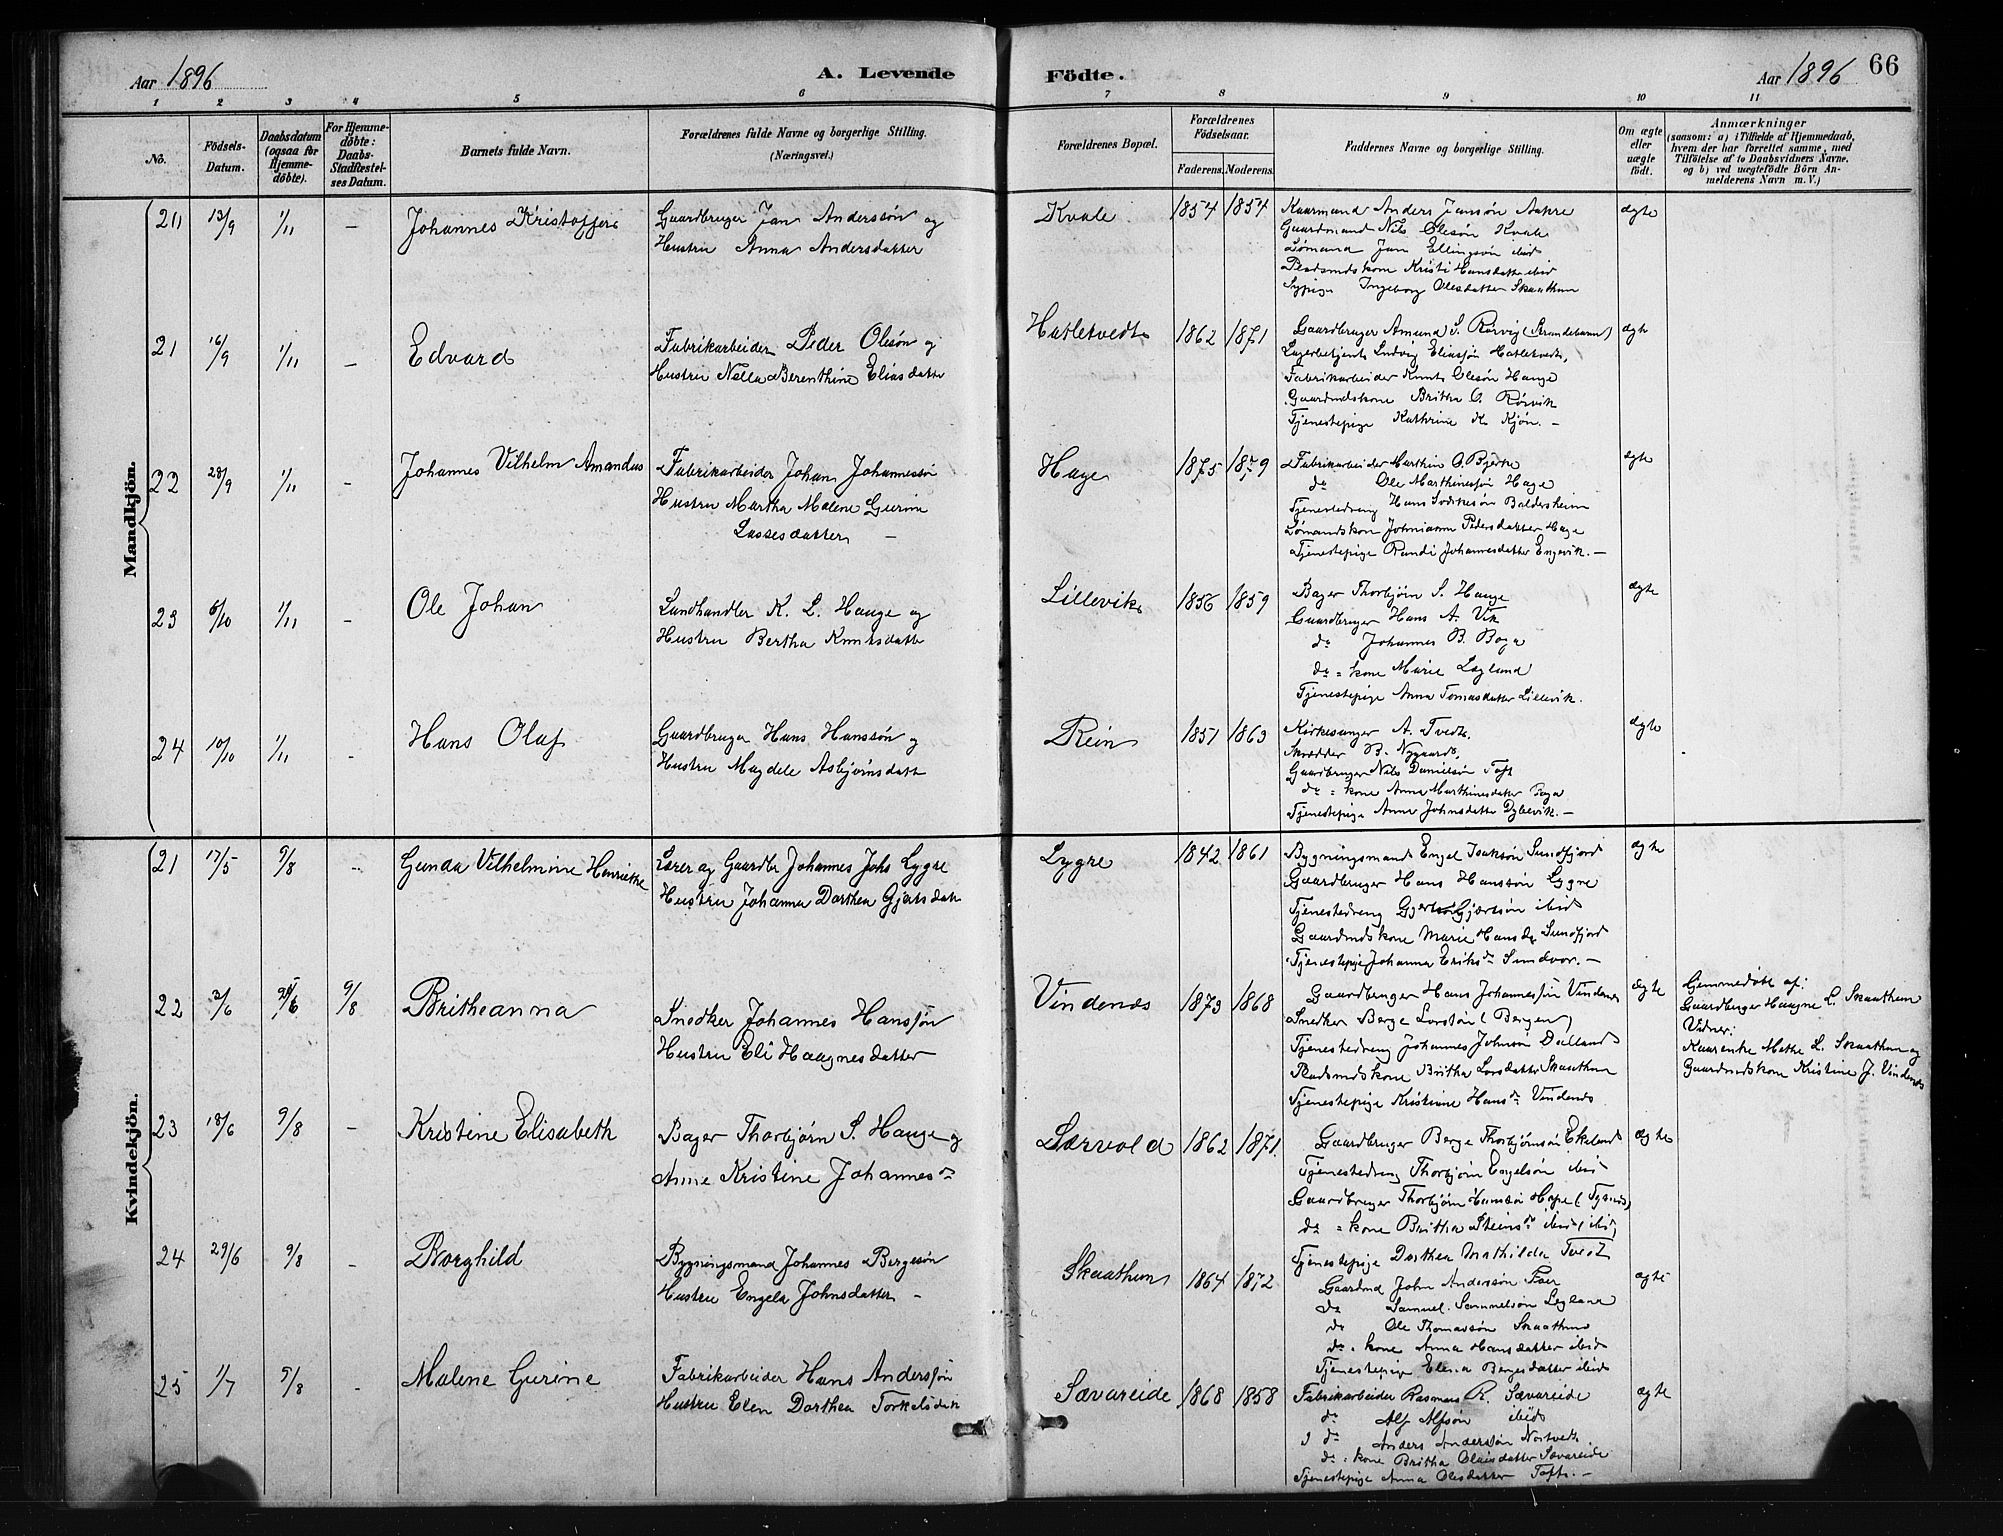 Aar 1896
A. Levende Födte.
Aar 1896
66
1 2 3 4 5 6 7 8 9 10 11
No.
Födsels-Datum.
Daabsdatum (ogsaa for Hjemmedöbte).
For Hjemmedöbte: Daabs-Stadfæstelses Datum.
Barnets fulde Navn.
Forældrenes fulde Navne og borgerlige Stilling.
(Næringsvei.)
Forældrenes Bopæl.
Forældrenes Födselsaar.
Faderens. Moderens.
Faddernes Navne og borgerlige Stilling.
Om ægte eller uægte födt.
Anmærkninger
(saasom: a) i Tilfælde af Hjemmedaab,
hvem der har forrettet samme, med
Tilföielse af to Daabsvidners Navne,
og b) ved uægtefödte Börn An-
melderens Navn m. V.)
Mandkjön.
20 13/9 1/11 – Johannes Kristoffer
Gaardbruger Jan Anderssön og
Hustru Anna Andersdatter
Kvale 1854 1854
Kaarmand Anders Jansön Aakre
Gaardmand Nils Olesön Kvale
Lömand Jan Ellingsön ibid
Pladsmdskone Kristi Hansdatter ibid
Sypige Ingeborg Olesdatter Skaathun
ægte
21 16/9 1/11 – Edvard
Fabrikarbeider Peder Olesön og
Hustru Nella Berenthine Eliasdatter
Hatletvedt 1862 1871
Gaardbruger Amund S. Rörvig (Strandebarm)
Lagerbetjent Ludvig Eliassön Hatletvedt,
Fabrikarbeider Knut Olesön Hauge
Gaardmdskone Britha O. Rörvik
Tjenestepige Kathrine K. Kjön. –
ægte
22 28/9 1/11 – Johannes Vilhelm Amandus
Fabrikarbeider Johan Johannessön
Hustru Martha Malene Gurine
Lassesdatter –
Hage 1875 1879
Fabrikarbeider Marthin O. Bjerke
do Ole Marthinessön Hage
Tjenestedreng Hans Baldersheim
Lömandskone Johnianna Pedersdatter Hage
Tjenestepige Randi Johannesdatter Engevik. –
ægte
23 6/10 1/11 – Ole Johan
Landhandler K. L. Hauge og
Hustru Bertha Knutsdatter
Lillevik 1856 1859
Bager Thorbjørn S. Hauge
Gaardbruger Hans A. Vik
do Johannes B. Boga
do = kone Marie Lægland
Tjenestepige Anna Tomasdatter Lillevik.
ægte
24 10/10 1/11 – Hans Olaf
Gaardbruger Hans Hanssön og
Hustru Magdele Asbjörnsdatter
Rein 1851 1863
Kirkesanger A. Tvedt.
Skrædder B. Nygaard,
Gaardbruger Nils Danielsön Toft
do = kone Anna Marthinesdatter Boga
Tjenestepige Anna Johnsdatter Dybevik. –
ægte
Kvindekjön.
21 17/5 9/8 – Gunda Vilhelmine Henriette
Lærer og Gaardbr Johannes Johs Lygre
Hustru Johanna Dorthea Gjertsdatter
Lygre 1842 1861
Bygningsmand Engel Isaksön Sundfjord
Gaardbruger Hans Hanssön Lygre
Tjenestedreng Gjertsön ibid
Gaardmdskone Marie Hansdr Sundfjord
Tjenestepige Johanna Eriksdr Sundvor. –
ægte
22 3/6 9/8 Britheanna
Snedker Johannes Hanssön
Hustru Eli Haagnesdatter
Vindenes 1873 1868
Gaardbruger Hans Johannessön Vindenes
Snedker Berge Larssön (Bergen)
Tjenestedreng Johannes Johnsön Dalland
Pladsmdskone Britha Larsdatter Skaathun
Tjenestepige Kristiane Hansdr Vindenes
ægte
Hjemmedøbt af:
Gaardbruger Haagne L. Skaathun
Vidner:
Kaarenke Mette L. Skaathun og
Gaardmdskone Kristine J. Vindenes
23 18/6 9/8 – Kristine Elisabeth
Bager Thorbjörn S. Hauge og
Anne Kristine Johannesdr
Særvold 1862 1871.
Gaardbruger Berge Thorbjörnsön Ekeland
Tjenestedreng Thorbjörn Engelsön ibid
Gaardbruger Thorbjörn Hansön Hope (Tysnes)
do = kone Britha Steinsdr ibid (ibid)
Tjenestepige Dorthea Mathilda Tvet
ægte
24 29/6 9/8 – Borghild
Bygningsmand Johannes Bergesön
Hustru Engela Johnsdatter –
Skaathun 1864 1872
Gaardmd John Andersön
do Samuel Samuelsön Legland
do Ole Thomassön Skaathun
do = kone Anna Hansdatter ibid
Tjenestepige Elena Bergesdatter ibid
ægte
25 1/7 9/8 – Malene Gurine
Fabrikarbeider Hans Anderssön
Hustru Elen Dorthea Torkelsdatter
Sævareide 1868 1858
Fabrikarbeider Rasmus R. Sævareide
do Alf Alfsön ibid
do Anders Andersön Nortvedt
do = kone Britha Olaisdatter Sævareide
Tjenestepige Anna Olesdatter Toft. –
ægte